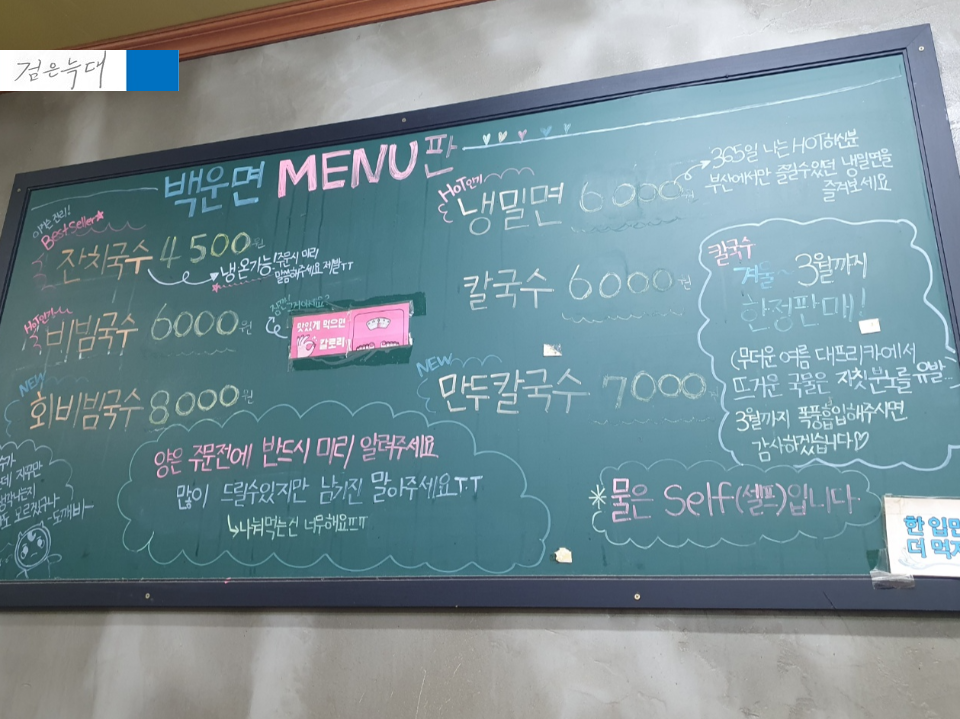 검은늑대
백운면 MENU판
Best Seller
잔치국수 4500원
냉온가능! 주문시 미리
말씀해주세요 제발ㅠㅠ
HOT인기
비빔국수 6000원
맛있게 먹으면
칼로리
NEW
회비빔국수 8000원
HOT인기
냉밀면 6000
365일 나는 HOT하신분
부산에서만 즐길수있던 냉밀면을
즐겨보세요
칼국수 6000원
NEW
만두칼국수 7000
칼국수
겨울 3월까지
한정판매!
(무더운 여름 대프리카에서
뜨거운 국물은 자칫 분노를 유발...
3월까지 폭풍흡입해주시면
감사하겠습니다♡
양은 주문전에 반드시 미리 알려주세요
많이 드릴수있지만 남기진 말아주세요ㅠㅠ
↳나눠먹는건 너무해요ㅠㅠ
*물은 Self(셀프)입니다
-도깨비-
한 입만
더 먹자